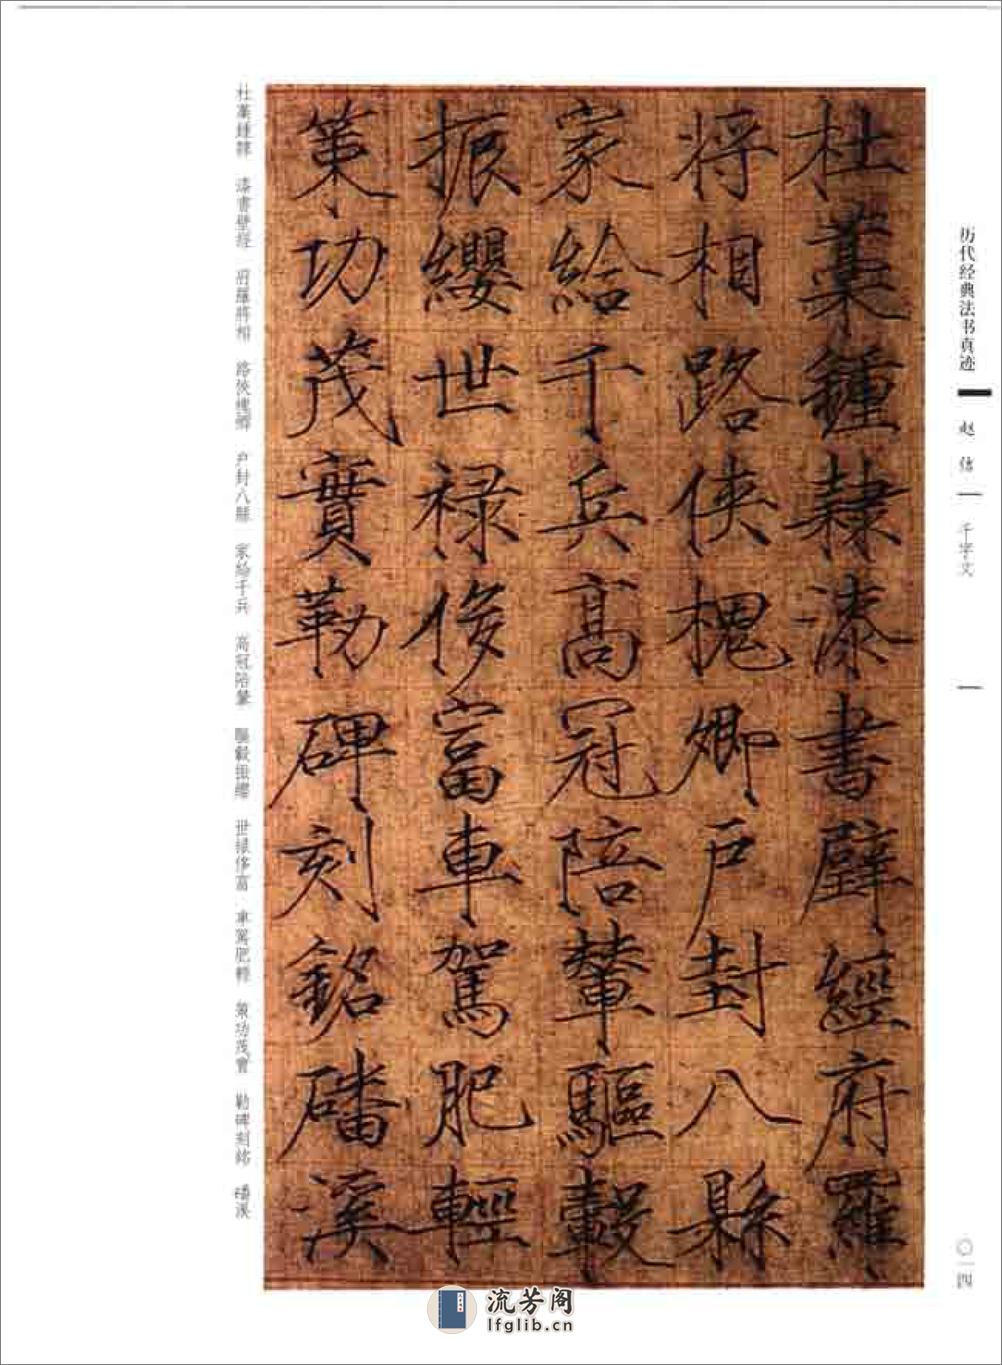 历代经典法书真迹
赵佶
千字文
〇一四
杜藁鍾隸漆書壁經府羅
將相路俠槐卿戶封八縣
家給千兵高冠陪輦驅轂
振纓世祿侈富車駕肥輕
策功茂實勒碑刻銘磻溪
杜藁鍾隸 漆書壁經 府羅將相 路俠槐卿 户封八縣 家給千兵 高冠陪輦 驅轂振纓 世祿侈富 車駕肥輕 策功茂實 勒碑刻銘 磻溪
流芳阁
lfglib.cn